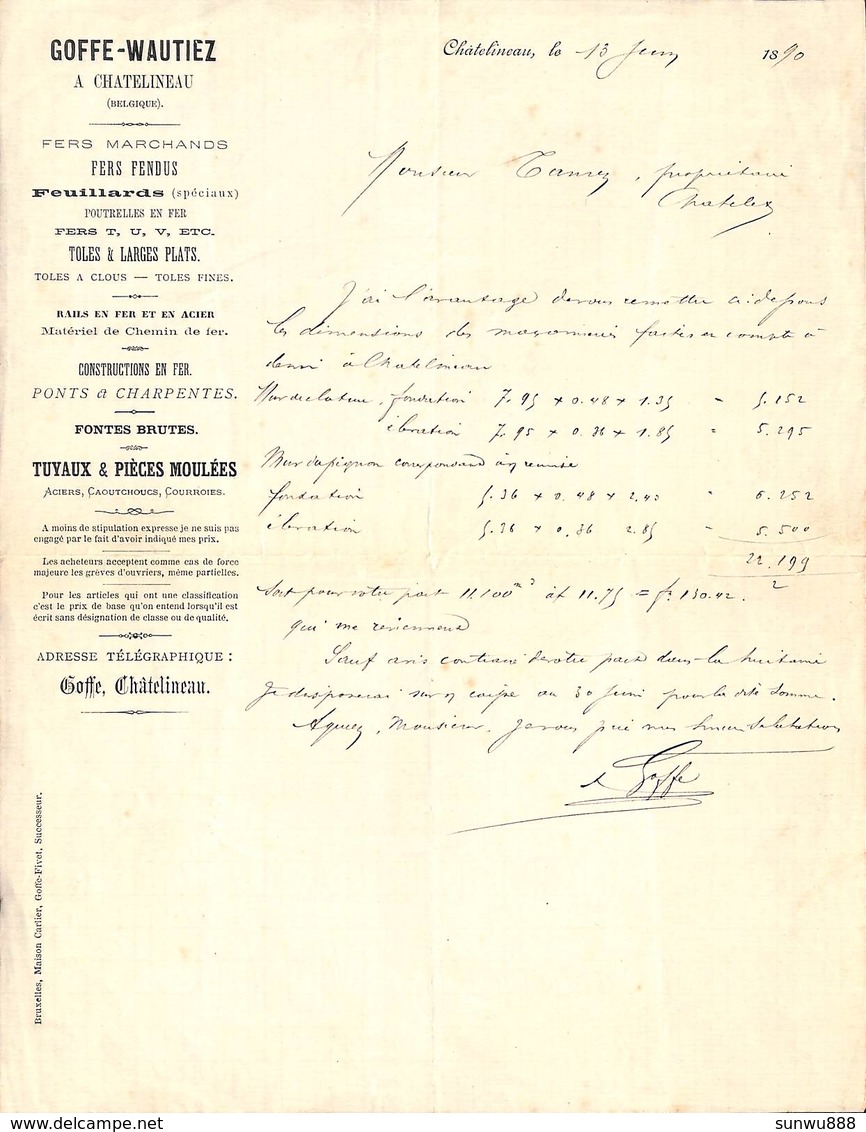 GOFFE-WAUTIEZ
A CHATELINEAU
(BELGIQUE).
FERS MARCHANDS
FERS FENDUS
Feuillards (spéciaux)
POUTRELLES EN FER
FERS T, U, V, ETC.
TOLES & LARGES PLATS.
TOLES A CLOUS — TOLES FINES.
RAILS EN FER ET EN ACIER
Matériel de Chemin de fer.
CONSTRUCTIONS EN FER.
PONTS & CHARPENTES.
FONTES BRUTES.
TUYAUX & PIÈCES MOULÉES
ACIERS, CAOUTCHOUCS, COURROIES.
A moins de stipulation expresse je ne suis pas
engagé par le fait d'avoir indiqué mes prix.
Les acheteurs acceptent comme cas de force
majeure les grèves d'ouvriers, même partielles.
Pour les articles qui ont une classification
c'est le prix de base qu'on entend lorsqu'il est
écrit sans désignation de classe ou de qualité.
ADRESSE TÉLÉGRAPHIQUE :
Goffe, Châtelineau.
Bruxelles, Maison Carlier, Goffe-Fivet, Successeur.
Châtelineau, le 13 Juin 1890
Monsieur propriétaire
Chatelet
J'ai l'avantage de vous remettre ci dessous
les dimensions des maçonneries faites en compte à
demi à Chatelineau
Mur de cloture, fondation 7.95 × 0.48 × 1.35 = 5.152
élévation 7.95 × 0.36 × 1.85 = 5.295
Mur de pignon correspondant à remise
fondation 5.36 × 0.48 × 2.43 = 6.252
élévation 5.36 × 0.36 2.85 = 5.500
22.199
2
Soit pour votre part 11.100 m3 à f 11.75 = fr 130.42.
qui me reviennent
Sauf avis contraire de votre part dans la huitaine
je disposerai sur v/ caisse au 30 Juin pour la dite somme.
Agréez, Monsieur, je vous prie mes sinceres salutations
Goffe
https://www.delcampe.net
sunwu888